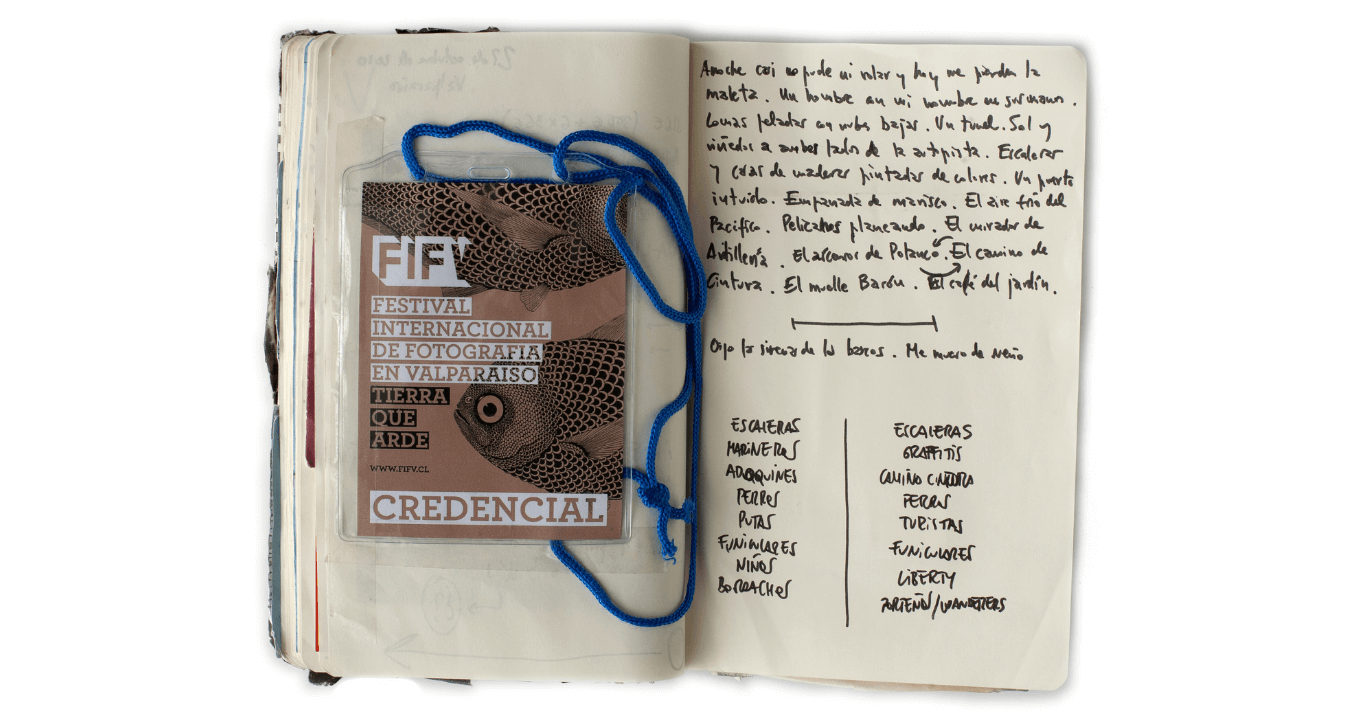 FIFV
FESTIVAL
INTERNACIONAL
DE FOTOGRAFIA
EN VALPARAISO
TIERRA
QUE
ARDE
WWW.FIFV.CL
CREDENCIAL
Anoche casi no pude ni volar y hoy me pierden la
maleta. Un hombre con mi nombre
Lomas peladas con nubes bajas. Un tunel. Sol y
viñedos a ambos lados de la autopista. Escaleras
y casas de maderas pintadas de colores. Un puerto
intuido. Empanada de marisco. El aire frío del
Pacífico. Pelícanos planeando. El mirador de
Artillería. El ascensor de Polanco. El camino de
Cintura. El muelle Barón. El café del jardín.
Oigo la sirena de los barcos. Me muero de sueño
ESCALERAS
MARINEROS
ADOQUINES
PERROS
PUTAS
FUNICULARES
NIÑOS
BORRACHOS
ESCALERAS
GRAFFITIS
CAMINO CINTURA
PERROS
TURISTAS
FUNICULARES
LIBERTY
PORTEÑOS/WANDERERS